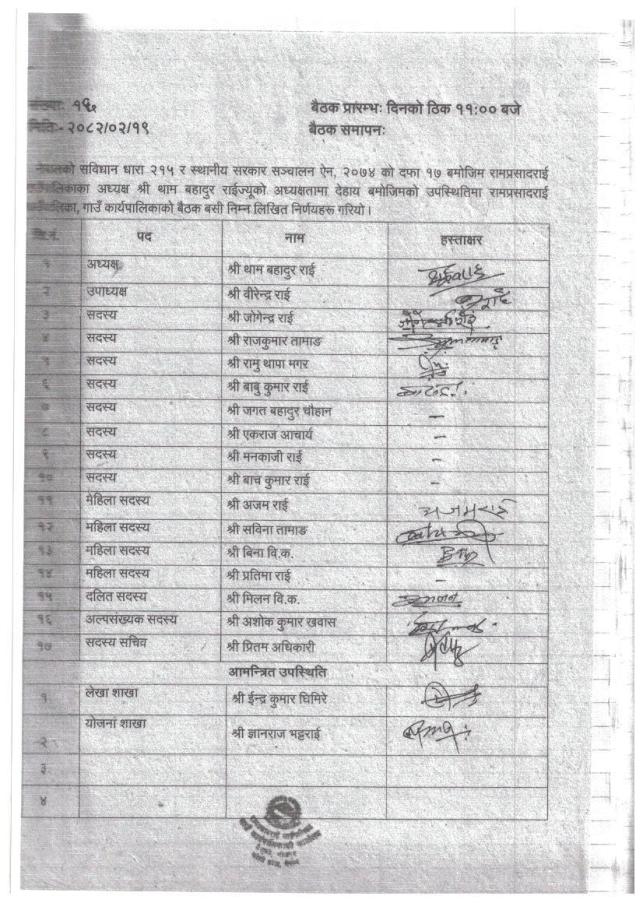 बैठक प्रारम्भः दिनको ठिक ११:०० बजे
२०८२/०२/१९ बैठक समापनः
सविधान धारा २१५ र स्थानीय सरकार सञ्चालन ऐन, २०७४ को दफा १७ बमोजिम रामप्रसादराई
अध्यक्ष श्री थाम बहादुर राईज्यूको अध्यक्षतामा देहाय बमोजिमको उपस्थितिमा रामप्रसादराई
गाउँ कार्यपालिकाको बैठक बसी निम्न लिखित निर्णयहरू गरियो ।
पद नाम हस्ताक्षर
१ अध्यक्ष श्री थाम बहादुर राई
२ उपाध्यक्ष श्री वीरेन्द्र राई
३ सदस्य श्री जोगेन्द्र राई
४ सदस्य श्री राजकुमार तामाङ
५ सदस्य श्री रामु थापा मगर
६ सदस्य श्री बाबु कुमार राई
७ सदस्य श्री जगत बहादुर चौहान -
८ सदस्य श्री एकराज आचार्य -
९ सदस्य श्री मनकाजी राई -
१० सदस्य श्री बाच कुमार राई -
११ मेहिला सदस्य श्री अजम राई अजमराई
१२ महिला सदस्य श्री सविना तामाङ
१३ महिला सदस्य श्री बिना वि.क.
१४ महिला सदस्य श्री प्रतिमा राई -
१५ दलित सदस्य श्री मिलन वि.क.
१६ अल्पसंख्यक सदस्य श्री अशोक कुमार खवास
१७ सदस्य सचिव श्री प्रितम अधिकारी
आमन्त्रित उपस्थिति
१ लेखा शाखा श्री ईन्द्र कुमार घिमिरे
२ योजना शाखा श्री ज्ञानराज भट्टराई
३
४